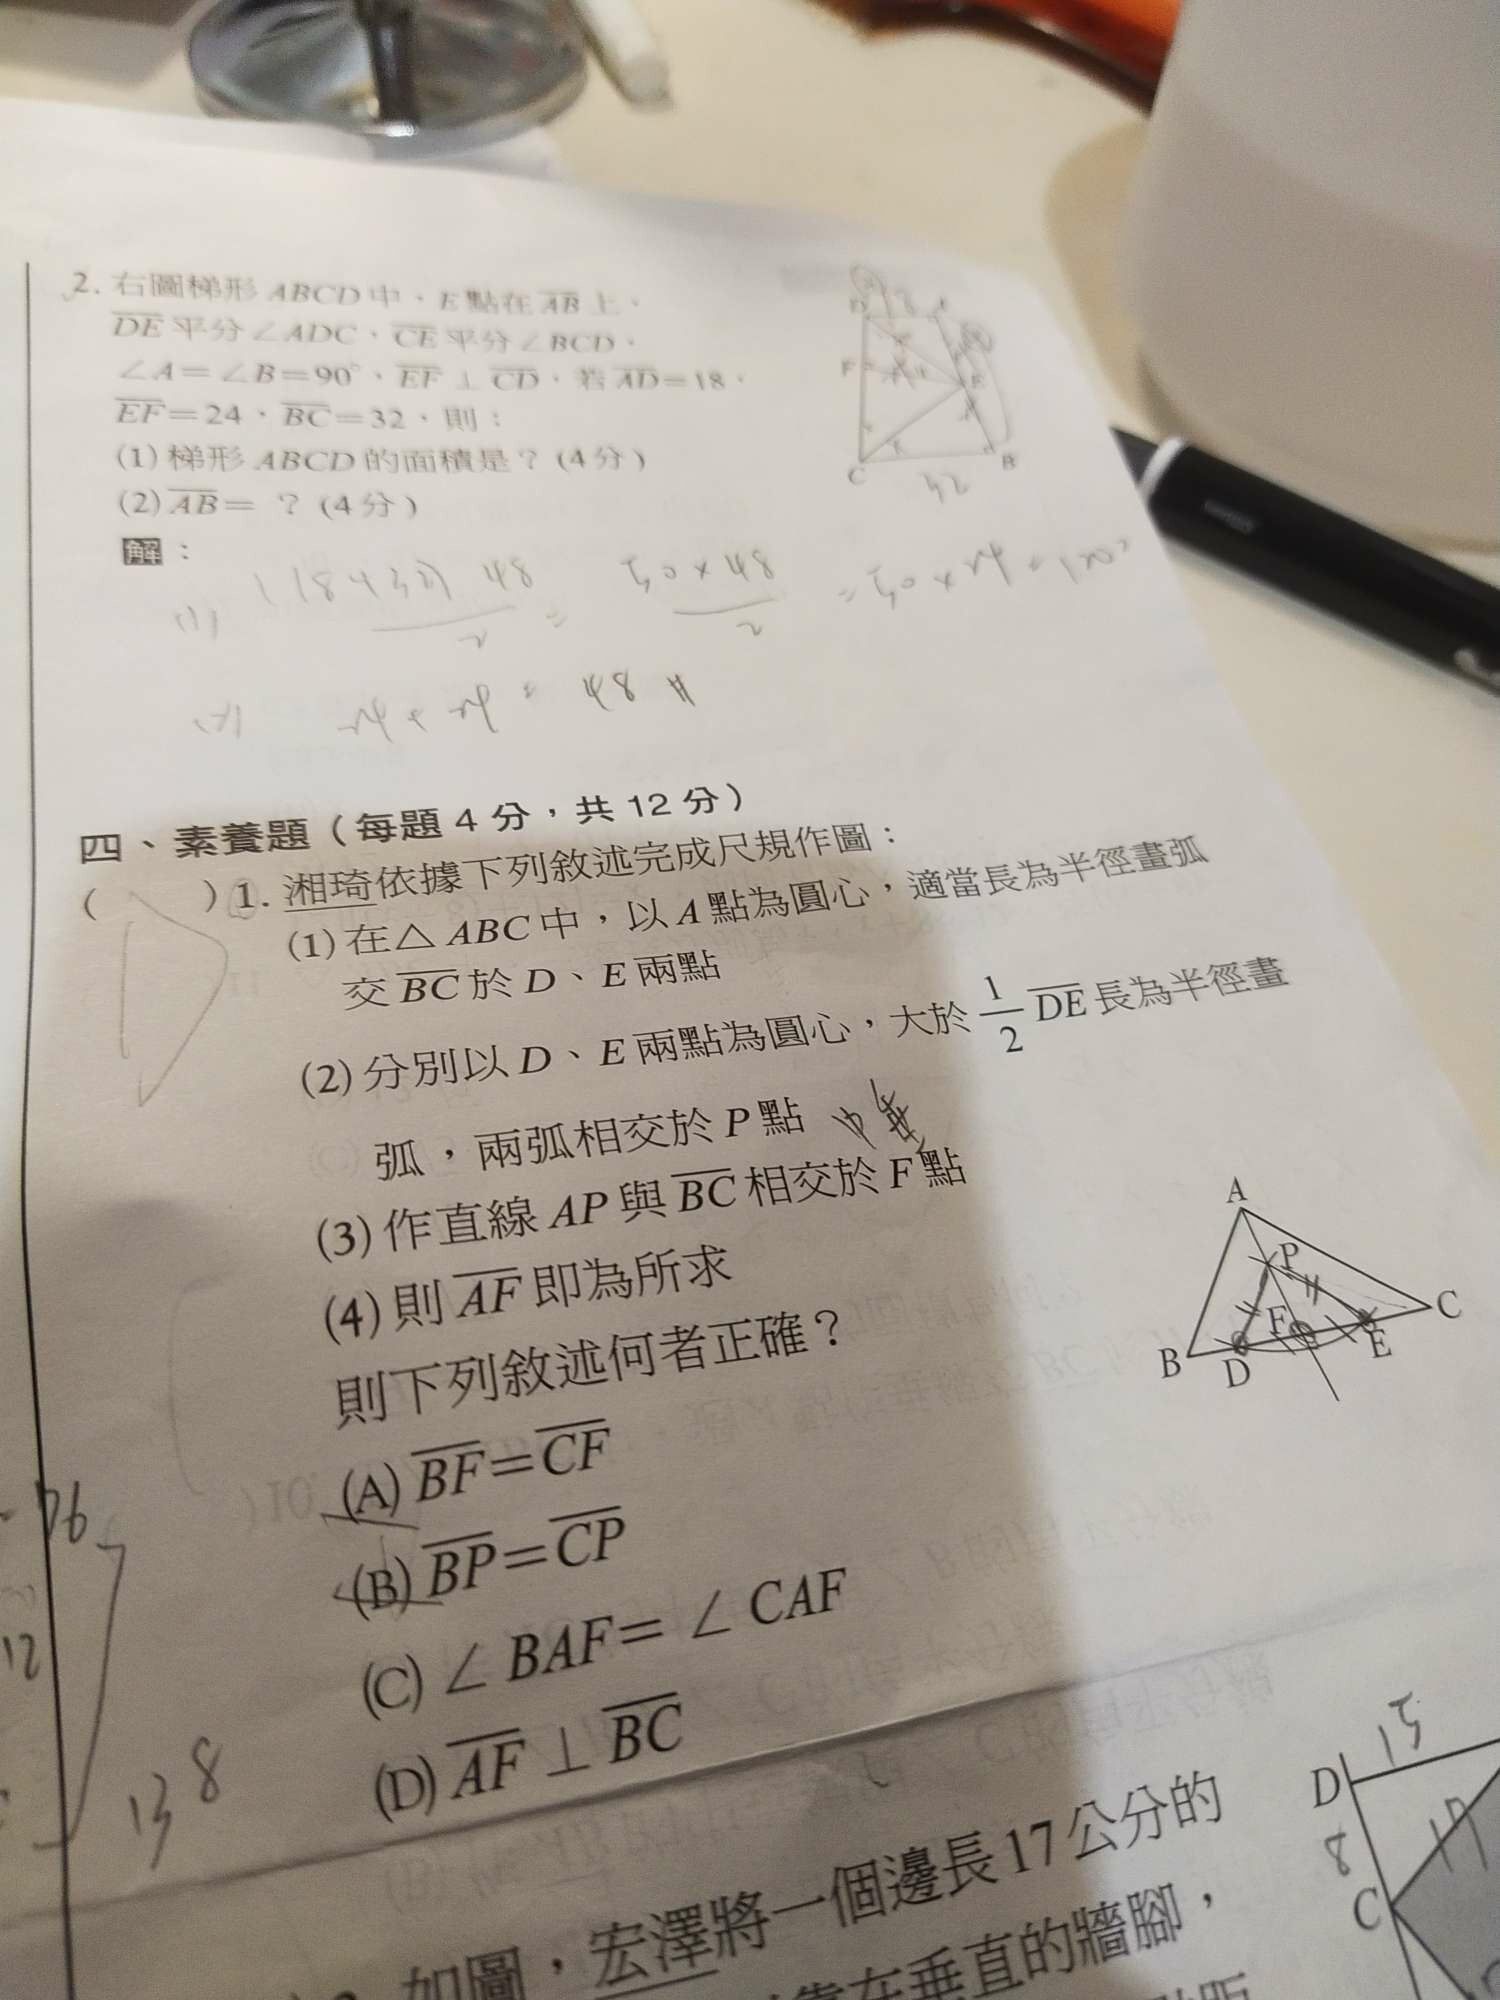 2. 右圖梯形 ABCD 中，E 點在 AB 上，
DE 平分∠ADC、CE 平分∠BCD，
∠A＝∠B＝90°、EF ⊥ CD，若 AD＝18，
EF＝24，BC＝32，則：
(1) 梯形 ABCD 的面積是？(4 分)
(2) AB＝ ？(4 分)
解：
D
F
E
C
B
32
(1) (18+32) 48 / 2 = 50×48 / 2 = 50×24 = 1200
(2) 24 + 24 = 48
四、素養題（每題 4 分，共 12 分）
( D ) 1. 湘琦依據下列敘述完成尺規作圖：
(1) 在△ABC 中，以 A 點為圓心，適當長為半徑畫弧
交 BC 於 D、E 兩點
(2) 分別以 D、E 兩點為圓心，大於 1/2 DE 長為半徑畫
弧，兩弧相交於 P 點
(3) 作直線 AP 與 BC 相交於 F 點
(4) 則 AF 即為所求
則下列敘述何者正確？
(A) BF＝CF
(B) BP＝CP
(C) ∠BAF＝∠CAF
(D) AF ⊥ BC
A
P
F
C
B
D
E
76
12
138
D
15
8
17
C
如圖，宏澤將一個邊長 17 公分的
在垂直的牆腳，